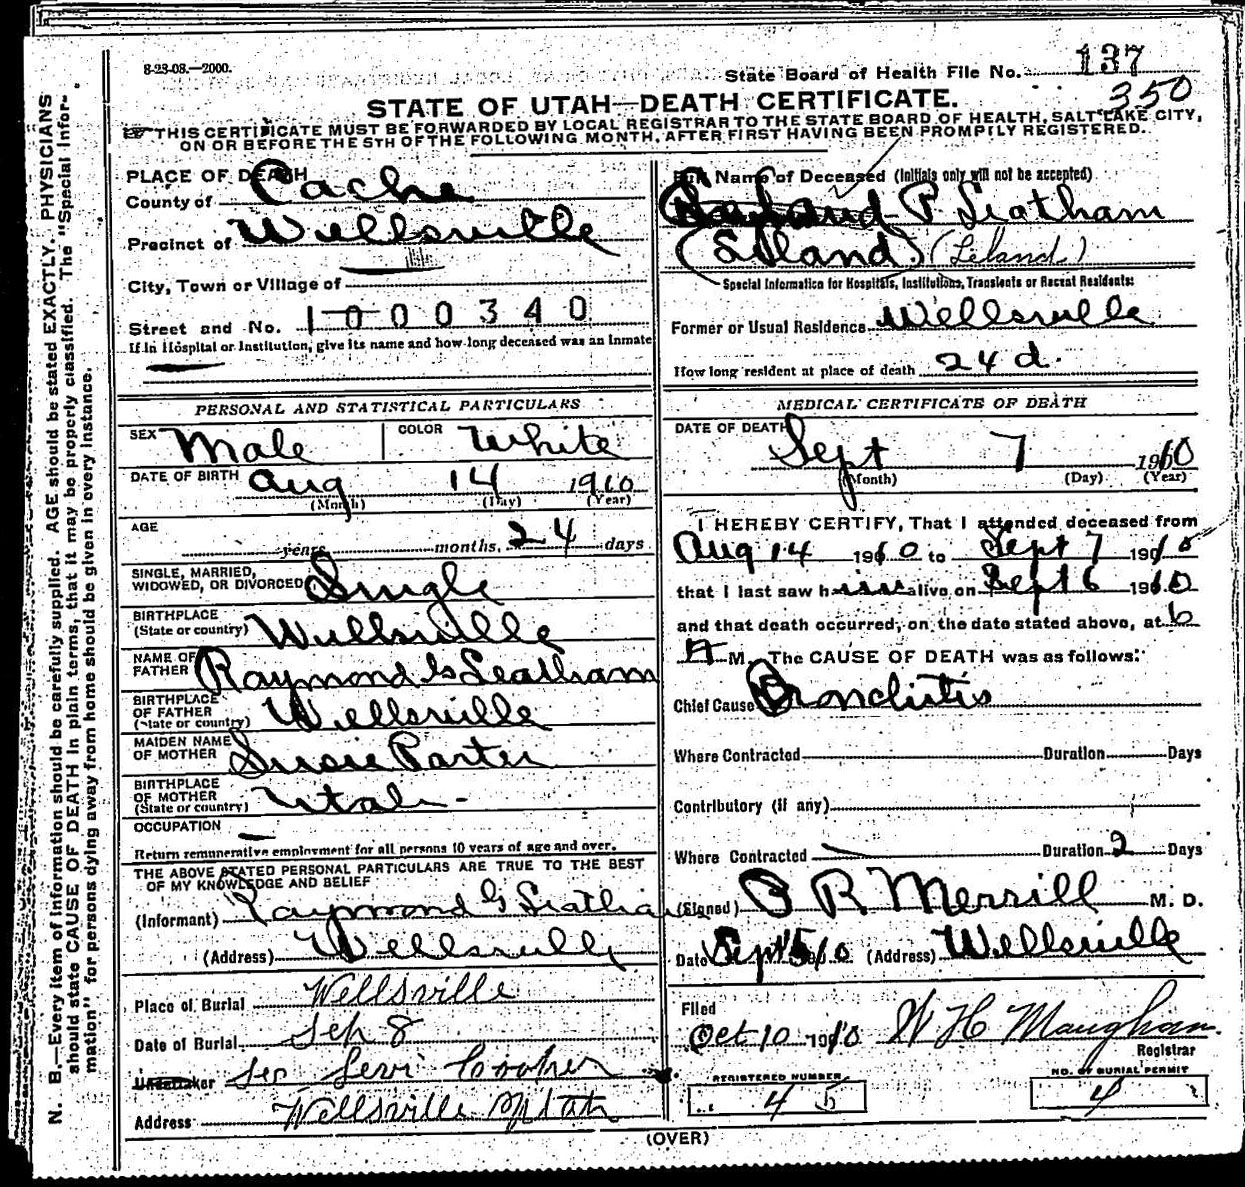 8-23-08.—2000.
State Board of Health File No. 137
350
STATE OF UTAH—DEATH CERTIFICATE.
THIS CERTIFICATE MUST BE FORWARDED BY LOCAL REGISTRAR TO THE STATE BOARD OF HEALTH, SALT LAKE CITY,
ON OR BEFORE THE 5TH OF THE FOLLOWING MONTH, AFTER FIRST HAVING BEEN PROMPTLY REGISTERED.
N. B.—Every item of information should be carefully supplied. AGE should be stated EXACTLY. PHYSICIANS
should state CAUSE OF DEATH in plain terms, that it may be properly classified. The "Special Infor-
mation" for persons dying away from home should be given in every instance.
PLACE OF DEATH
County of Cache
Precinct of Wellsville
City, Town or Village of
Street and No. 1000340
If in Hospital or Institution, give its name and how long deceased was an Inmate
PERSONAL AND STATISTICAL PARTICULARS
SEX Male COLOR White
DATE OF BIRTH Aug 14 1910
(Month) (Day) (Year)
AGE
years months, 24 days
SINGLE, MARRIED,
WIDOWED, OR DIVORCED Single
BIRTHPLACE
(State or country) Wellsville
NAME OF
FATHER Raymond G Leatham
BIRTHPLACE
OF FATHER
(State or country) Wellsville
MAIDEN NAME
OF MOTHER Susie Parter
BIRTHPLACE
OF MOTHER
(State or country) Utah
OCCUPATION
Return remunerative employment for all persons 10 years of age and over.
THE ABOVE STATED PERSONAL PARTICULARS ARE TRUE TO THE BEST
OF MY KNOWLEDGE AND BELIEF
(Informant) Raymond G Leatham
(Address) Wellsville
Place of Burial Wellsville
Date of Burial Sep 8
Undertaker Levi Cooper
Address Wellsville Utah
Full Name of Deceased (Initials only will not be accepted)
P. Leatham
(Leland) (Leland)
Special Information for Hospitals, Institutions, Transients or Recent Residents:
Former or Usual Residence Wellsville
How long resident at place of death 24 d.
MEDICAL CERTIFICATE OF DEATH
DATE OF DEATH
Sept 7 1910
(Month) (Day) (Year)
I HEREBY CERTIFY, That I attended deceased from
Aug 14 1910 to Sept 7 1910
that I last saw him alive on Sept 6 1910
and that death occurred, on the date stated above, at 6
A M. The CAUSE OF DEATH was as follows:
Chief Cause Bronchitis
Where Contracted Duration Days
Contributory (if any)
Where Contracted Duration 2 Days
(Signed) O R Merrill M. D.
Date Sept 1910 (Address) Wellsville
Filed
Oct 10 1910 W H Maughan
Registrar
REGISTERED NUMBER
45
NO. OF BURIAL PERMIT
4
(OVER)